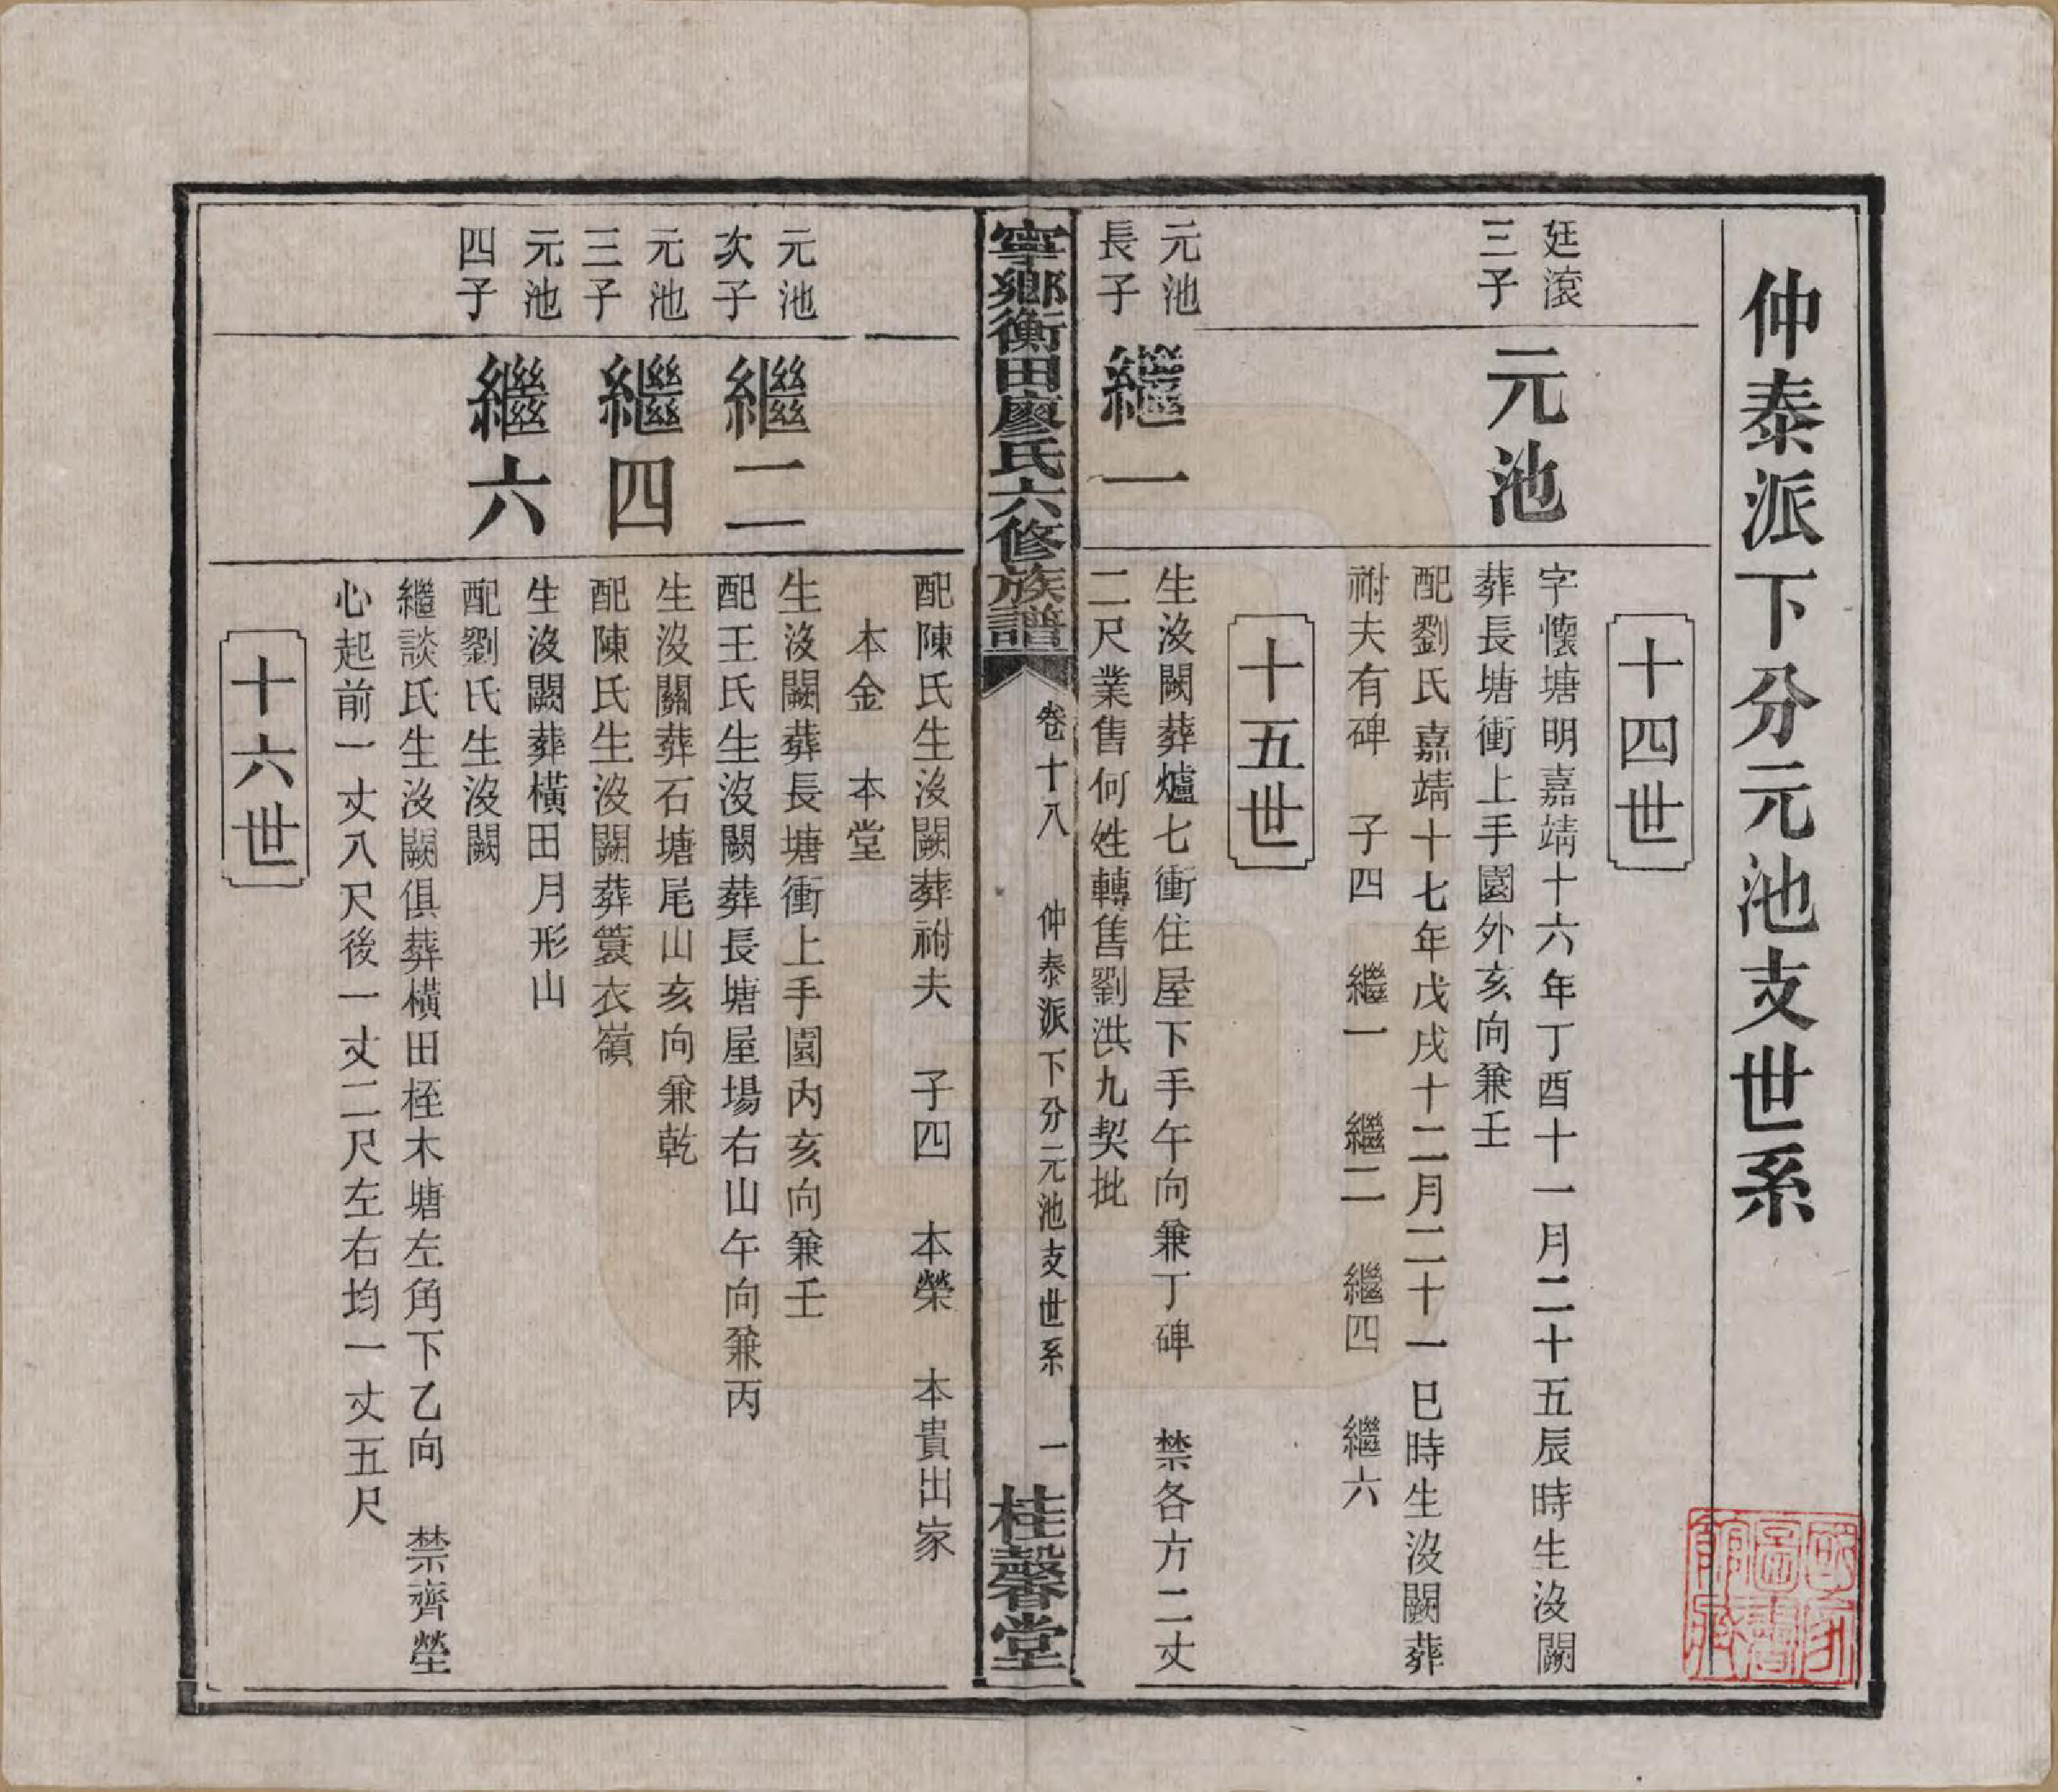 仲泰派下分元池支世系
十四世
廷滾
三子
元池
字懷塘明嘉靖十六年丁酉十一月二十五辰時生沒闕
葬長塘衝上手園外亥向兼壬
配劉氏嘉靖十七年戊戌十二月二十一巳時生沒闕葬
祔夫有碑 子四 繼一 繼二 繼四 繼六
十五世
元池
長子
繼一
生沒闕葬爐七衝住屋下手午向兼丁碑 禁各方二丈
二尺業售何姓轉售劉洪九契批
寧鄉衡田廖氏六修族譜
卷十八 仲泰派下分元池支世系 一
桂馨堂
配陳氏生沒闕葬祔夫 子四 本榮 本貴出家
本金 本堂
元池
次子
繼二
生沒闕葬長塘衝上手園內亥向兼壬
配王氏生沒闕葬長塘屋場右山午向兼丙
元池
三子
繼四
生沒闕葬石塘尾山亥向兼乾
配陳氏生沒闕葬簑衣嶺
元池
四子
繼六
生沒闕葬橫田月形山
配劉氏生沒闕
繼談氏生沒闕俱葬橫田桎木塘左角下乙向 禁齊塋
心起前一丈八尺後一丈二尺左右均一丈五尺
十六世